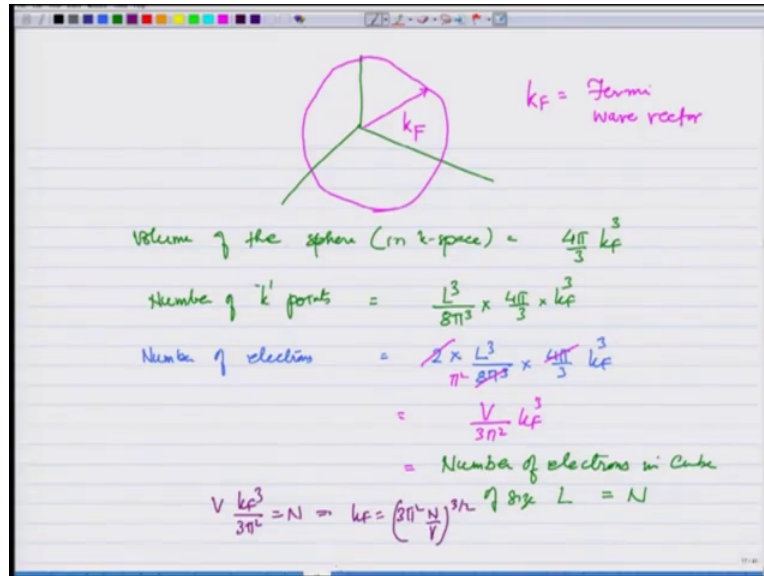 k_F
k_F = Fermi
wave vector
Volume of the sphere (in k-space) = 4π/3 k_F^3
Number of 'k' points = L^3/8π^3 × 4π/3 × k_F^3
Number of electrons = 2 × L^3/8π^3 × 4π/3 k_F^3
π^2
= V/3π^2 k_F^3
= Number of electrons in Cube
of size L = N
V k_F^3/3π^2 = N ⇒ k_F = (3π^2 N/V)^3/2